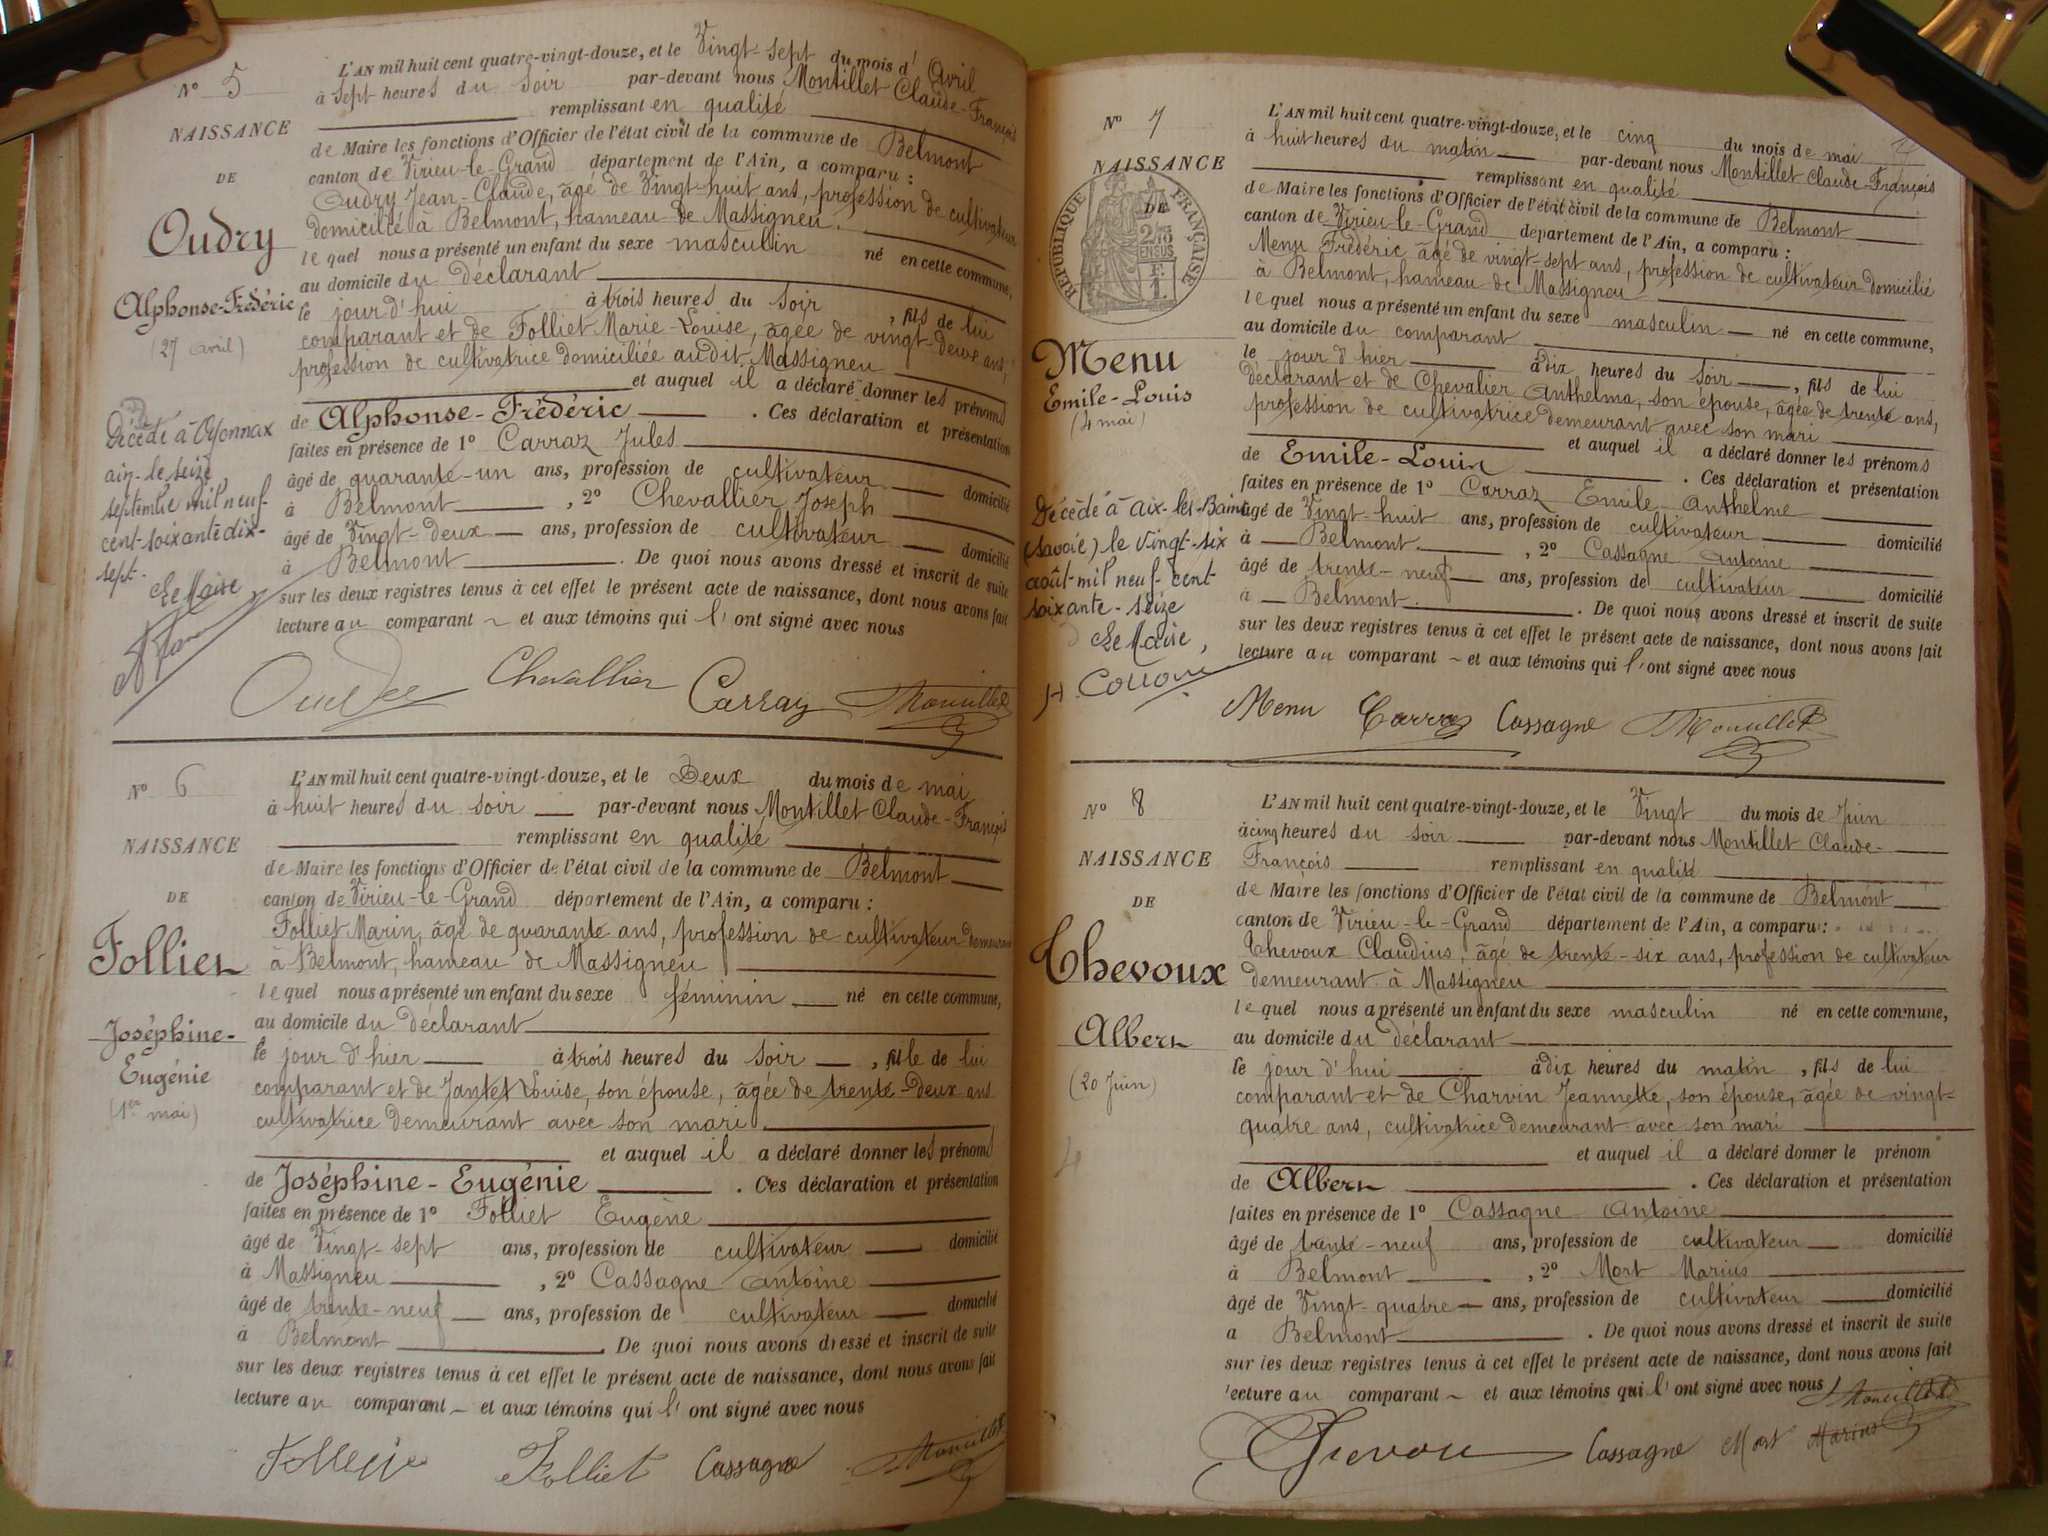 N° 5
NAISSANCE
DE
Oudry
Alphonse-Frédéric
(27 avril)
Décédé à Oyonnax
ain, le seize
septembre mil neuf
cent-soixante dix-
sept.
Le Maire
L'AN mil huit cent quatre-vingt-douze, et le Vingt-sept du mois d'Avril
à sept heures du soir par-devant nous Montillet Claude-François
remplissant en qualité
de Maire les fonctions d'Officier de l'état civil de la commune de Belmont
canton de Virieu-le-Grand département de l'Ain, a comparu :
Oudry Jean-Claude, âgé de Vingt-huit ans, profession de cultivateur
domicilié à Belmont, hameau de Massigneu.
lequel nous a présenté un enfant du sexe masculin né en cette commune,
au domicile du déclarant
le jour d'hui à trois heures du soir, fils de lui
comparant et de Folliet Marie-Louise, âgée de vingt-deux ans,
profession de cultivatrice domiciliée audit Massigneu
et auquel il a déclaré donner les prénoms
de Alphonse-Frédéric. Ces déclaration et présentation
faites en présence de 1° Carraz Jules
âgé de quarante-un ans, profession de cultivateur domicilié
à Belmont, 2° Chevallier Joseph
âgé de Vingt-deux ans, profession de cultivateur domicilié
à Belmont. De quoi nous avons dressé et inscrit de suite
sur les deux registres tenus à cet effet le présent acte de naissance, dont nous avons fait
lecture au comparant et aux témoins qui l'ont signé avec nous
Chevallier Carraz Montillet
N° 6
NAISSANCE
DE
Folliet
Joséphine-
Eugénie
(1er mai)
L'AN mil huit cent quatre-vingt-douze, et le Deux du mois de mai
à huit heures du soir par-devant nous Montillet Claude-François
remplissant en qualité
de Maire les fonctions d'Officier de l'état civil de la commune de Belmont
canton de Virieu-le-Grand département de l'Ain, a comparu :
Folliet Marin, âgé de quarante ans, profession de cultivateur demeurant
à Belmont, hameau de Massigneu
lequel nous a présenté un enfant du sexe féminin né en cette commune,
au domicile du déclarant
le jour d'hier à trois heures du soir, fille de lui
comparant et de Jantet Louise, son épouse, âgée de trente-deux ans
cultivatrice demeurant avec son mari.
et auquel il a déclaré donner les prénoms
de Joséphine-Eugénie. Ces déclaration et présentation
faites en présence de 1° Folliet Eugène
âgé de Vingt-sept ans, profession de cultivateur domicilié
à Massigneu, 2° Cassagne Antoine
âgé de trente-neuf ans, profession de cultivateur domicilié
à Belmont. De quoi nous avons dressé et inscrit de suite
sur les deux registres tenus à cet effet le présent acte de naissance, dont nous avons fait
lecture au comparant et aux témoins qui l'ont signé avec nous
Folliet Cassagne Montillet
N° 7
NAISSANCE
DE
RÉPUBLIQUE FRANÇAISE
2/10
EN SUS
Menu
Emile-Louis
(4 mai)
Décédé à Aix-les-Bains
(Savoie) le vingt-six
août mil neuf cent
soixante-seize
Le Maire,
L'AN mil huit cent quatre-vingt-douze, et le cinq du mois de mai
à huit heures du matin par-devant nous Montillet Claude-François
remplissant en qualité
de Maire les fonctions d'Officier de l'état civil de la commune de Belmont
canton de Virieu-le-Grand département de l'Ain, a comparu :
Menu Frédéric âgé de vingt-sept ans, profession de cultivateur domicilié
à Belmont, hameau de Massigneu
lequel nous a présenté un enfant du sexe masculin né en cette commune,
au domicile du comparant
le jour d'hier à dix heures du soir, fils de lui
déclarant et de Chevalier Anthelma, son épouse, âgée de trente ans,
profession de cultivatrice demeurant avec son mari
et auquel il a déclaré donner les prénoms
de Emile-Louis. Ces déclaration et présentation
faites en présence de 1° Carraz Emile Anthelme
âgé de Vingt-huit ans, profession de cultivateur domicilié
à Belmont, 2° Cassagne Antoine
âgé de trente-neuf ans, profession de cultivateur domicilié
à Belmont. De quoi nous avons dressé et inscrit de suite
sur les deux registres tenus à cet effet le présent acte de naissance, dont nous avons fait
lecture au comparant et aux témoins qui l'ont signé avec nous
Menu Carraz Cassagne Montillet
N° 8
NAISSANCE
DE
Thevoux
Albert
(20 Juin)
L'AN mil huit cent quatre-vingt-douze, et le Vingt du mois de Juin
à cinq heures du soir par-devant nous Montillet Claude-
François remplissant en qualité
de Maire les fonctions d'Officier de l'état civil de la commune de Belmont
canton de Virieu-le-Grand département de l'Ain, a comparu :
Thevoux Claudius, âgé de trente-six ans, profession de cultivateur
demeurant à Massigneu
lequel nous a présenté un enfant du sexe masculin né en cette commune,
au domicile du déclarant
le jour d'hui à dix heures du matin, fils de lui
comparant et de Charvin Jeannette, son épouse, âgée de vingt-
quatre ans, cultivatrice demeurant avec son mari
et auquel il a déclaré donner le prénom
de Albert. Ces déclaration et présentation
faites en présence de 1° Cassagne Antoine
âgé de trente-neuf ans, profession de cultivateur domicilié
à Belmont, 2° Mort Marius
âgé de Vingt-quatre ans, profession de cultivateur domicilié
à Belmont. De quoi nous avons dressé et inscrit de suite
sur les deux registres tenus à cet effet le présent acte de naissance, dont nous avons fait
lecture au comparant et aux témoins qui l'ont signé avec nous Montillet
Cassagne Mort Marius